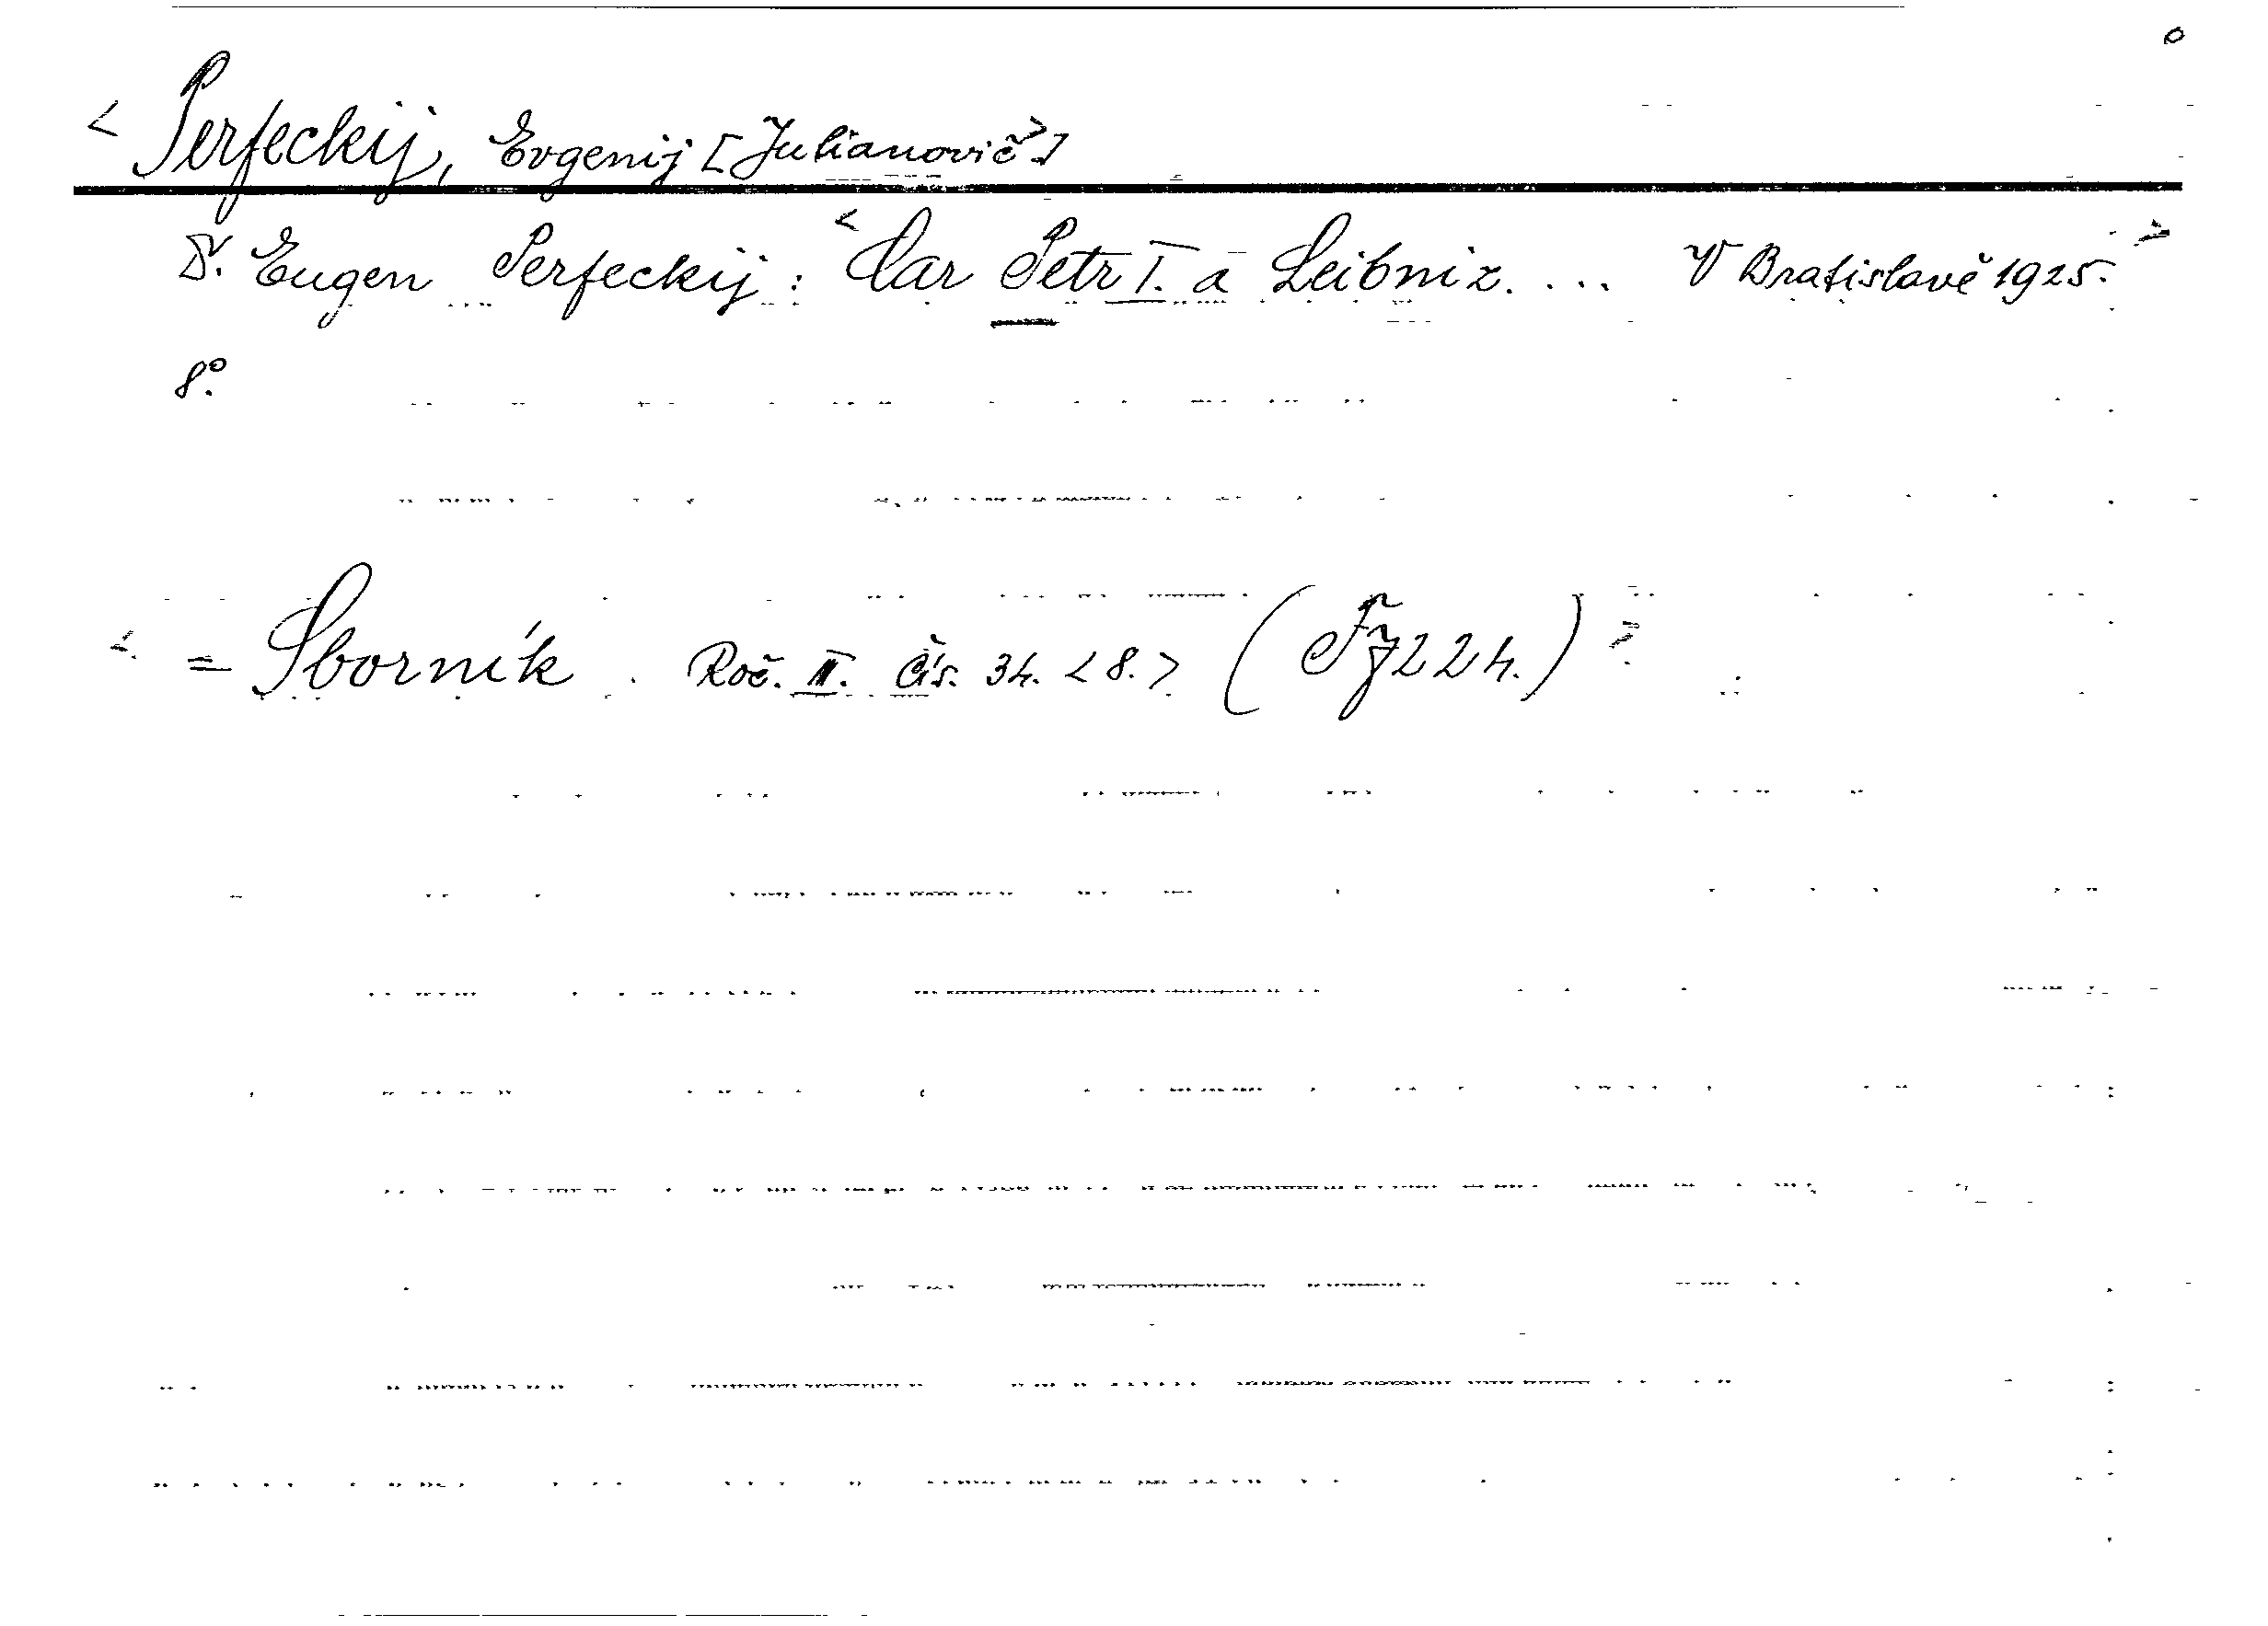 < Perfeckij, Evgenij [Julianovič>]
Dr. Eugen Perfeckij: <Car Petr I. a Leibniz. ... V Bratislavě 1925.>
8°.
<. = Sborník. Roč. III. Čís. 34. <8.>